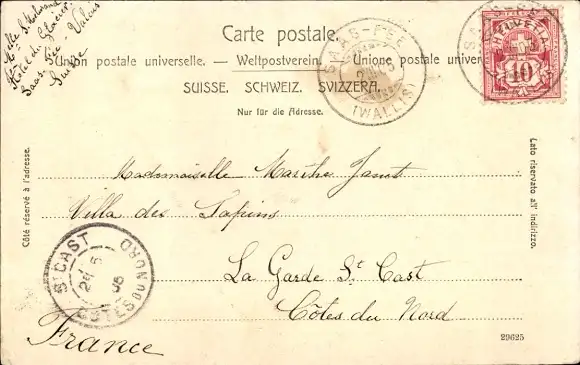 Hôtel du Glacier
Saas-Fée - Valais
Suisse
Carte postale.
Union postale universelle. — Weltpostverein. — Unione postale univer
SUISSE. SCHWEIZ. SVIZZERA.
Nur für die Adresse.
SAAS-FEE
(WALLIS)
HELVETIA
10
Côté réservé à l'adresse.
Lato riservato all' indirizzo.
Mademoiselle Marthe
Villa des Sapins
La Garde St Cast
Côtes du Nord
France
ST CAST
CÔTES DU NORD
29625